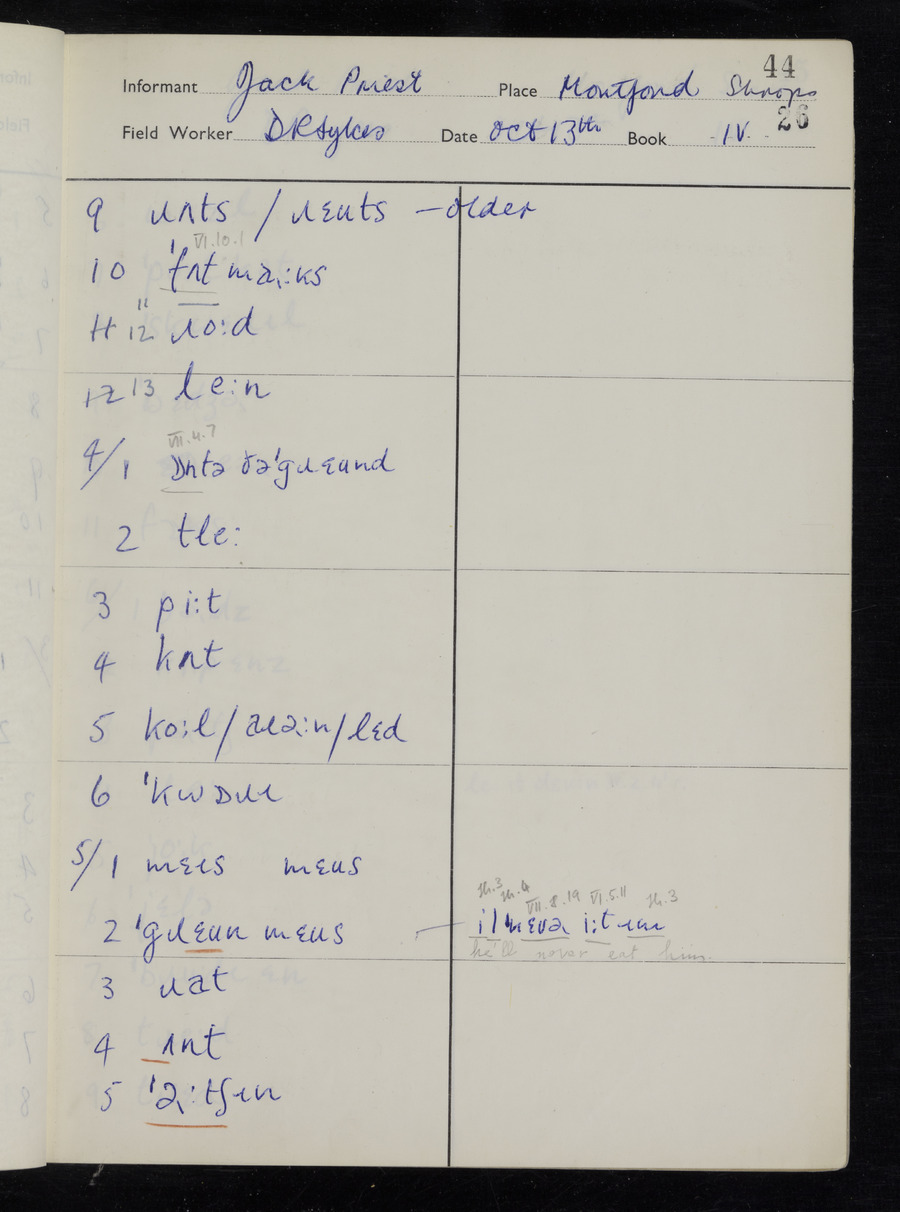 44
Informant Jack Priest Place Montford Shrops
26
Field Worker DRSykes Date Oct 13th Book IV.
9 ɹʌts / ɹɛuts – older
VI.10.1
10 ˈfʌt maːks
11
11 12 ɹoːd
12 13 leːn
VII.4.7
4/1 ɒntə ðəˈgɹɛund
2 tleː
3 piːt
4 kʌt
5 koːl / dɹəːn / lɛd
6 ˈkwɒɹɪ
5/1 mɛɪs mɛus
th.3 th.4 VII.8.19 VI.5.11 th.3
2 ˈgɹɛun mɛus – il nɛvə iːt ɪm
he'll never eat him.
3 ɹat
4 ʌnt
5 ˈəːtʃɪn